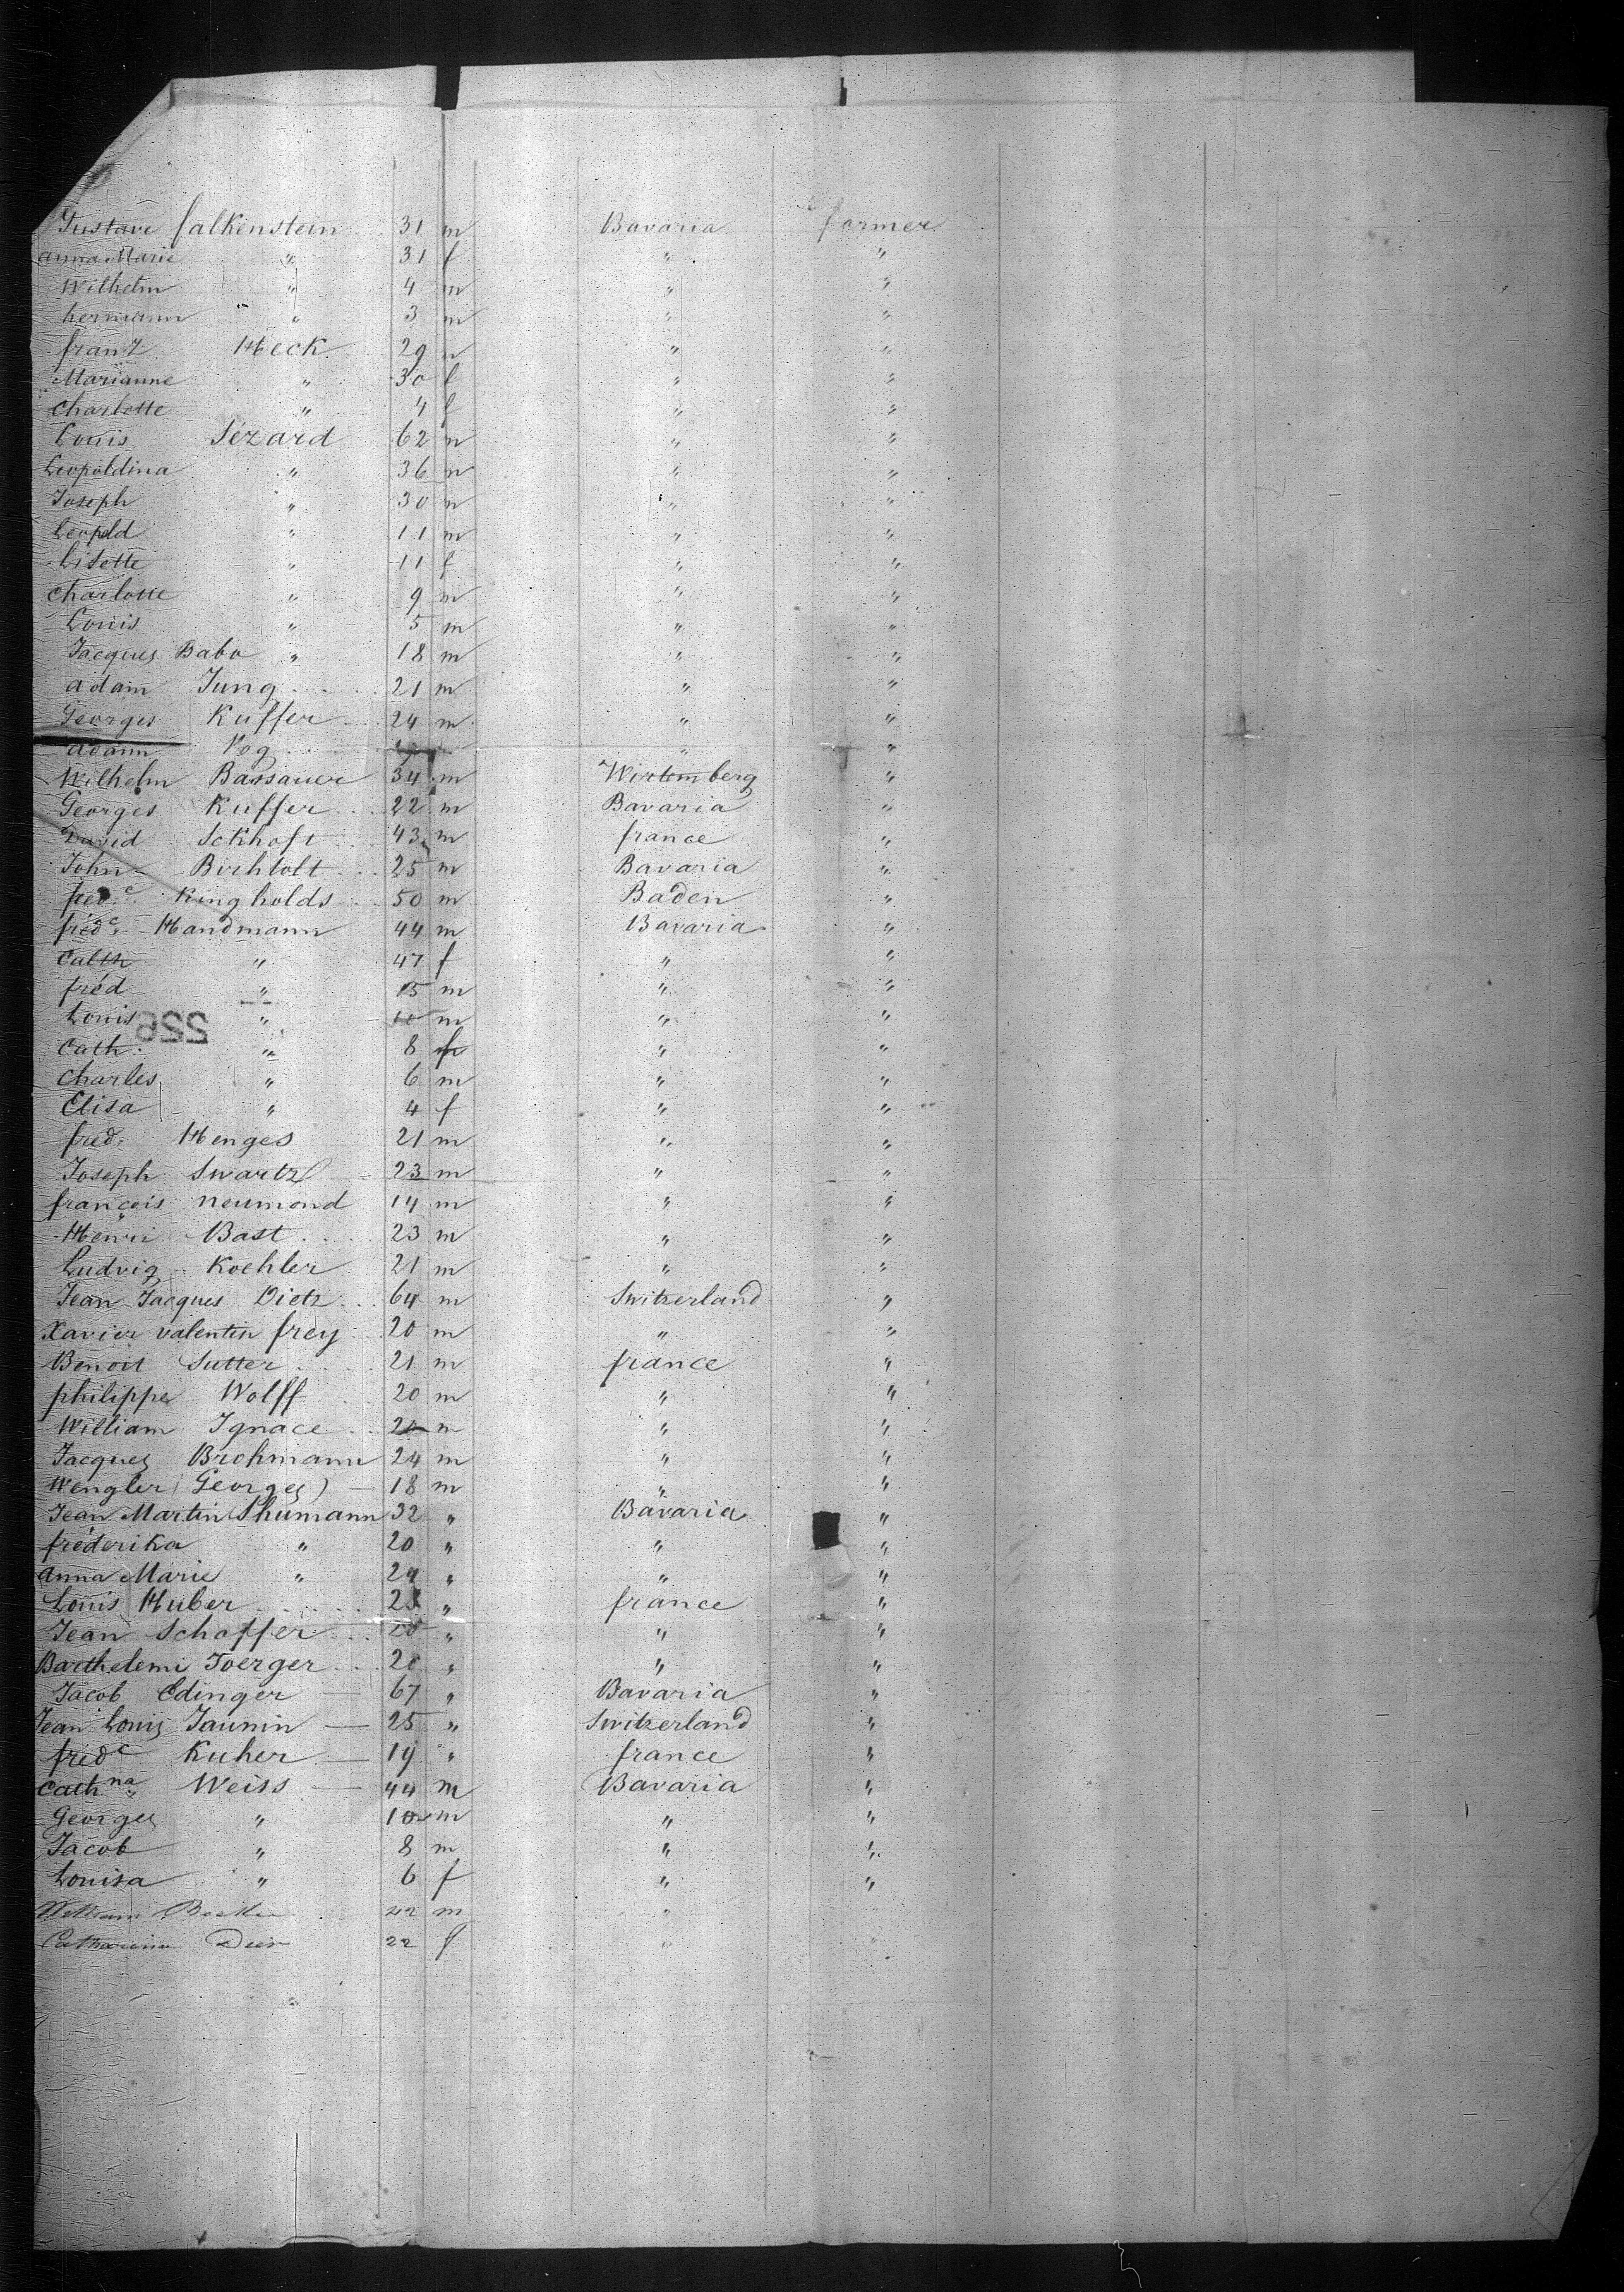 Gustave falkenstein 31 m Bavaria farmer
anna Marie " 31 f " "
Wilhelm " 4 m " "
hermann " 3 m " "
franz Heck 29 m " "
Marianne " 30 f " "
Charlotte " 4 f " "
Louis Sézard 62 m " "
Leopoldina " 36 m " "
Joseph " 30 m " "
Leopold " 11 m " "
Lisette " 11 f " "
Charlotte " 9 m " "
Louis " 5 m " "
Jacques Babo " 18 m " "
adam Jung 21 m " "
Georges Kuffer 24 m " "
adam Vog " "
Wilhelm Bassauer 34 m Wirtemberg "
Georges Kuffer 22 m Bavaria "
David Sckhoft 43 m france "
John Birhtolt 25 m Bavaria "
fred.c Kingholds 50 m Baden "
fréd.c Handmann 44 m Bavaria "
Cath " 47 f " "
fréd " 15 m " "
Louis " 10 m " "
Cath: " 8 f " "
Charles " 6 m " "
Elisa " 4 f " "
fred. Henges 21 m " "
Joseph Swartz 23 m " "
françois neumond 14 m " "
Henri Bast 23 m " "
Ludvig Koehler 21 m " "
Jean Jacques Dietz 64 m Switzerland "
Xavier valentin frey 20 m " "
Benoit Sutter 21 m france "
philippe Wolff 20 m " "
William Ignace m " "
Jacques Brohmann 24 m " "
Wengler (Georges) 18 m " "
Jean Martin Shumann 32 " Bavaria "
fréderika " 20 " " "
anna Marie " 24 " " "
Louis Huber " france "
Jean Schaffer 20 " " "
Barthelemi Joerger 20 " " "
Jacob Edinger 67 " Bavaria "
Jean Louis Jaunin 25 " Switzerland "
fredc Kuher 19 " france "
Cathna Weiss 44 m Bavaria "
Georges " 10 m " "
Jacob " 8 m " "
Louisa " 6 f " "
William 42 m " "
Catharina 22 f " "